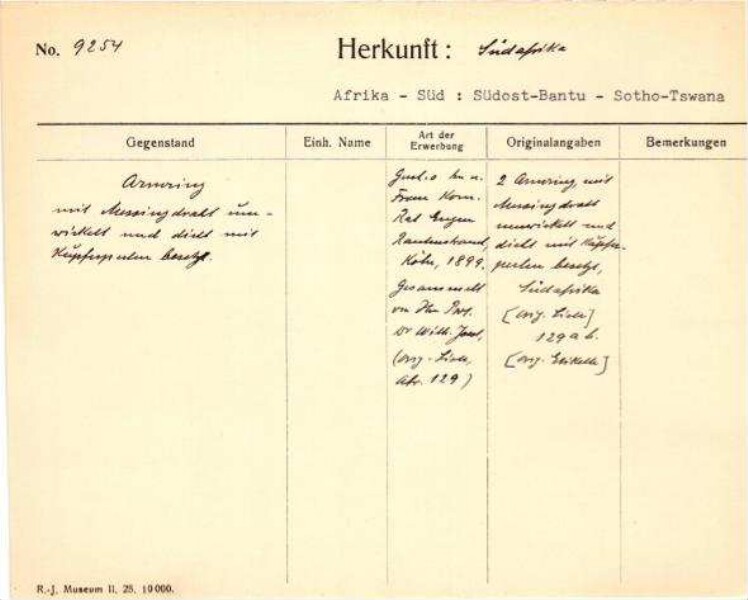 No. 9254
Herkunft: Südafrika
Afrika - Süd : Südost-Bantu - Sotho-Tswana
Gegenstand
Einh. Name
Art der
Erwerbung
Originalangaben
Bemerkungen
Armring
mit Messingdraht um-
wickelt und dicht mit
Kupferperlen besetzt.
Frau Kom.
Rat Eugen
Rautenstrauch,
Köln, 1899.
Gesammelt
von Hrn Prof.
Dr Wilh. Joest,
(orig. Liste,
Afr. 129)
2 Armring, mit
Messingdraht
umwickelt und
dicht mit Kupfer-
perlen besetzt,
Südafrika
[orig. Liste]
129 a b.
[orig. Etikette]
R.-J. Museum II. 25. 10000.